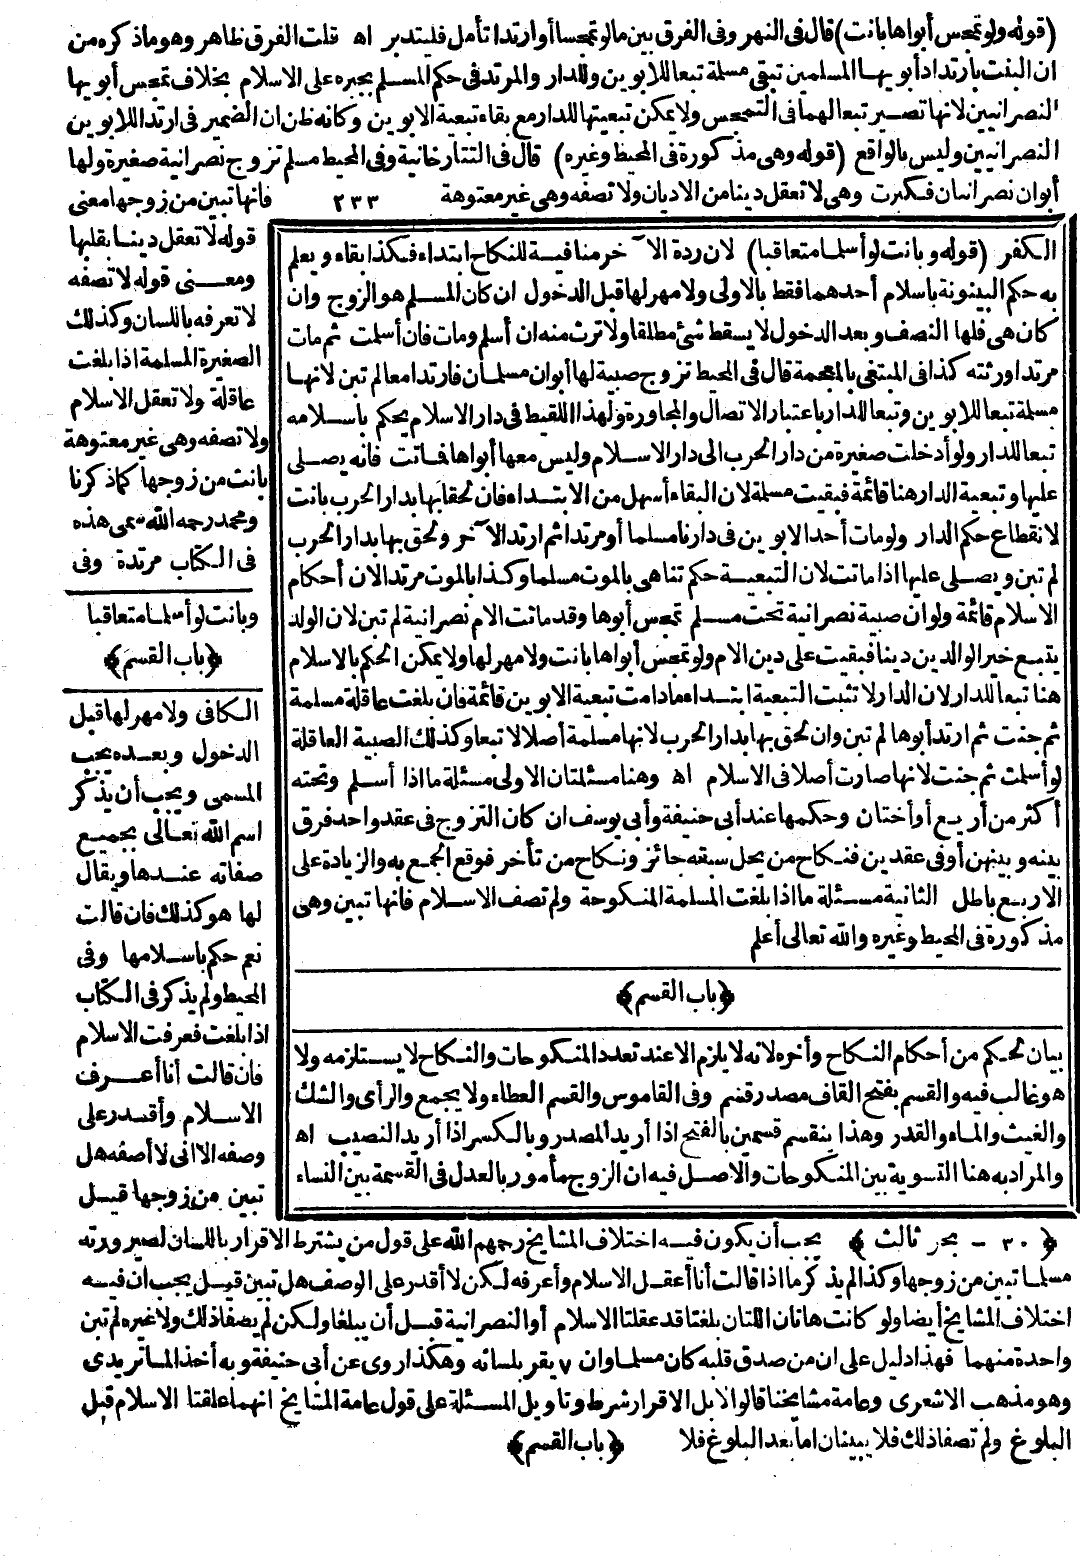 (قوله ولو تمجس أبواها بانت) قال فى النهر وفى الفرق بين مالو تمجسا أو ارتدا تأمل فليتدبر اه قلت الفرق ظاهر وهو ماذكره من
ان البنت بارتداد أبويها المسلمين تبقى مسلمة تبعا للابوين وللدار والمرتد فى حكم المسلم بجبره على الاسلام بخلاف تمجس أبويها
النصرانيين لانها تصير تبعا لهما فى التمجس ولا يمكن تبعيتها للدار مع بقاء تبعية الابوين وكانه ظن ان الضمير فى ارتدا للابوين
النصرانيين وليس بالواقع (قوله وهى مذكورة فى المحيط وغيره) قال فى التتارخانية وفى المحيط مسلم تزوج نصرانية صغيرة ولها
أبوان نصرانيان فكبرت وهى لا تعقل دينا من الاديان ولا تصفه وهى غير معتوهة ٢٣٣ فانها تبين من زوجها معنى
قوله لا تعقل دينا بقلبها
ومعنى قوله لا تصفه
لا تعرفه باللسان وكذلك
الصغيرة المسلمة اذا بلغت
عاقلة ولا تعقل الاسلام
ولا تصفه وهى غير معتوهة
بانت من زوجها كما ذكرنا
ومحمد رحمه الله سمى هذه
فى الكتاب مرتدة وفى
وبانت لو أسلما متعاقبا
﴿باب القسم﴾
الكافى ولا مهر لها قبل
الدخول وبعده يجب
المسمى ويجب أن يذكر
اسم الله تعالى بجميع
صفاته عندها ويقال
لها هو كذلك فان قالت
نعم حكم باسلامها وفى
المحيط ولم يذكر فى الكتاب
اذا بلغت فعرفت الاسلام
فان قالت أنا أعرف
الاسلام وأقدر على
وصفه الا انى لا أصفه هل
تبين من زوجها قيل
الكفر (قوله وبانت لو أسلما متعاقبا) لان ردة الآخر منافية للنكاح ابتداء فكذا بقاء ويعلم
به حكم البينونة باسلام أحدهما فقط بالاولى ولا مهر لها قبل الدخول ان كان المسلم هو الزوج وان
كان هى فلها النصف وبعد الدخول لا يسقط شئ مطلقا ولا ترث منه ان أسلم ومات فان أسلمت ثم مات
مرتدا ورثته كذا فى المبتغى بالمعجمة قال فى المحيط تزوج صبية لها أبوان مسلمان فارتدا معا لم تبن لانها
مسلمة تبعا للابوين وتبعا للدار باعتبار الاتصال والمجاورة ولهذا اللقيط فى دار الاسلام يحكم باسلامه
تبعا للدار ولو أدخلت صغيرة من دار الحرب الى دار الاسلام وليس معها أبواها فماتت فانه يصلى
عليها وتبعية الدار هنا قائمة فبقيت مسلمة لان البقاء أسهل من الابتداء فان لحقا بها بدار الحرب بانت
لانقطاع حكم الدار ولو مات أحد الابوين فى دارنا مسلما أو مرتدا ثم ارتد الآخر ولحق بها بدار الحرب
لم تبن ويصلى عليها اذا ماتت لان التبعية حكم تناهى بالموت مسلما وكذا بالموت مرتدا لان أحكام
الاسلام قائمة ولو ان صبية نصرانية تحت مسلم تمجس أبوها وقد ماتت الام نصرانية لم تبن لان الولد
يتبع خير الوالدين دينا فبقيت على دين الام ولو تمجس أبواها بانت ولا مهر لها ولا يمكن الحكم بالاسلام
هنا تبعا للدار لان الدار لا تثبت التبعية ابتداء مادامت تبعية الابوين قائمة فان بلغت عاقلة مسلمة
ثم جنت ثم ارتد أبوها لم تبن وان لحق بها بدار الحرب لانها مسلمة أصلا لا تبعا وكذلك الصبية العاقلة
لو أسلمت ثم جنت لانها صارت أصلا فى الاسلام اه وهنا مسئلتان الاولى مسئلة ما اذا أسلم وتحته
أكثر من أربع أو أختان وحكمها عند أبى حنيفة وأبى يوسف ان كان التزوج فى عقد واحد فرق
بينه وبينهن أو فى عقدين فنكاح من يحل سبقه جائز ونكاح من تأخر فوقع الجمع به والزيادة على
الاربع باطل الثانية مسئلة ما اذا بلغت المسلمة المنكوحة ولم تصف الاسلام فانها تبين وهى
مذكورة فى المحيط وغيره والله تعالى أعلم
﴿باب القسم﴾
بيان لحكم من أحكام النكاح وأخره لانه لا يلزم الا عند تعدد المنكوحات والنكاح لا يستلزمه ولا
هو غالب فيه والقسم بفتح القاف مصدر قسم وفى القاموس والقسم العطاء ولا يجمع والرأى والشك
والغيث والماء والقدر وهذا ينقسم قسمين بالفتح اذا أريد المصدر وبالكسر اذا أريد النصيب اه
والمراد به هنا التسوية بين المنكوحات والاصل فيه ان الزوج مأمور بالعدل فى القسمة بين النساء
﴿٣٠ - بحر ثالث﴾ يجب أن يكون فيه اختلاف المشايخ رحمهم الله على قول من يشترط الاقرار باللسان لصيرورته
مسلما تبين من زوجها وكذا لم يذكر ما اذا قالت أنا أعقل الاسلام وأعرفه لكن لا أقدر على الوصف هل تبين قيل يجب ان فيه
اختلاف المشايخ أيضا ولو كانت هاتان اللتان بلغتا قد عقلتا الاسلام أو النصرانية قبل أن يبلغا ولكن لم يصفا ذلك ولا غيره لم تبن
واحدة منهما فهذا دليل على ان من صدق قلبه كان مسلما وان ٧ يقر بلسانه وهكذا روى عن أبى حنيفة وبه أخذ الماتريدى
وهو مذهب الاشعرى وعامة مشايخنا قالوا لا بل الاقرار شرط وتاويل المسئلة على قول عامة المشايخ انهما علقتا الاسلام قبل
البلوغ ولم تصفا ذلك فلا يبينان اما بعد البلوغ فلا ﴿باب القسم﴾